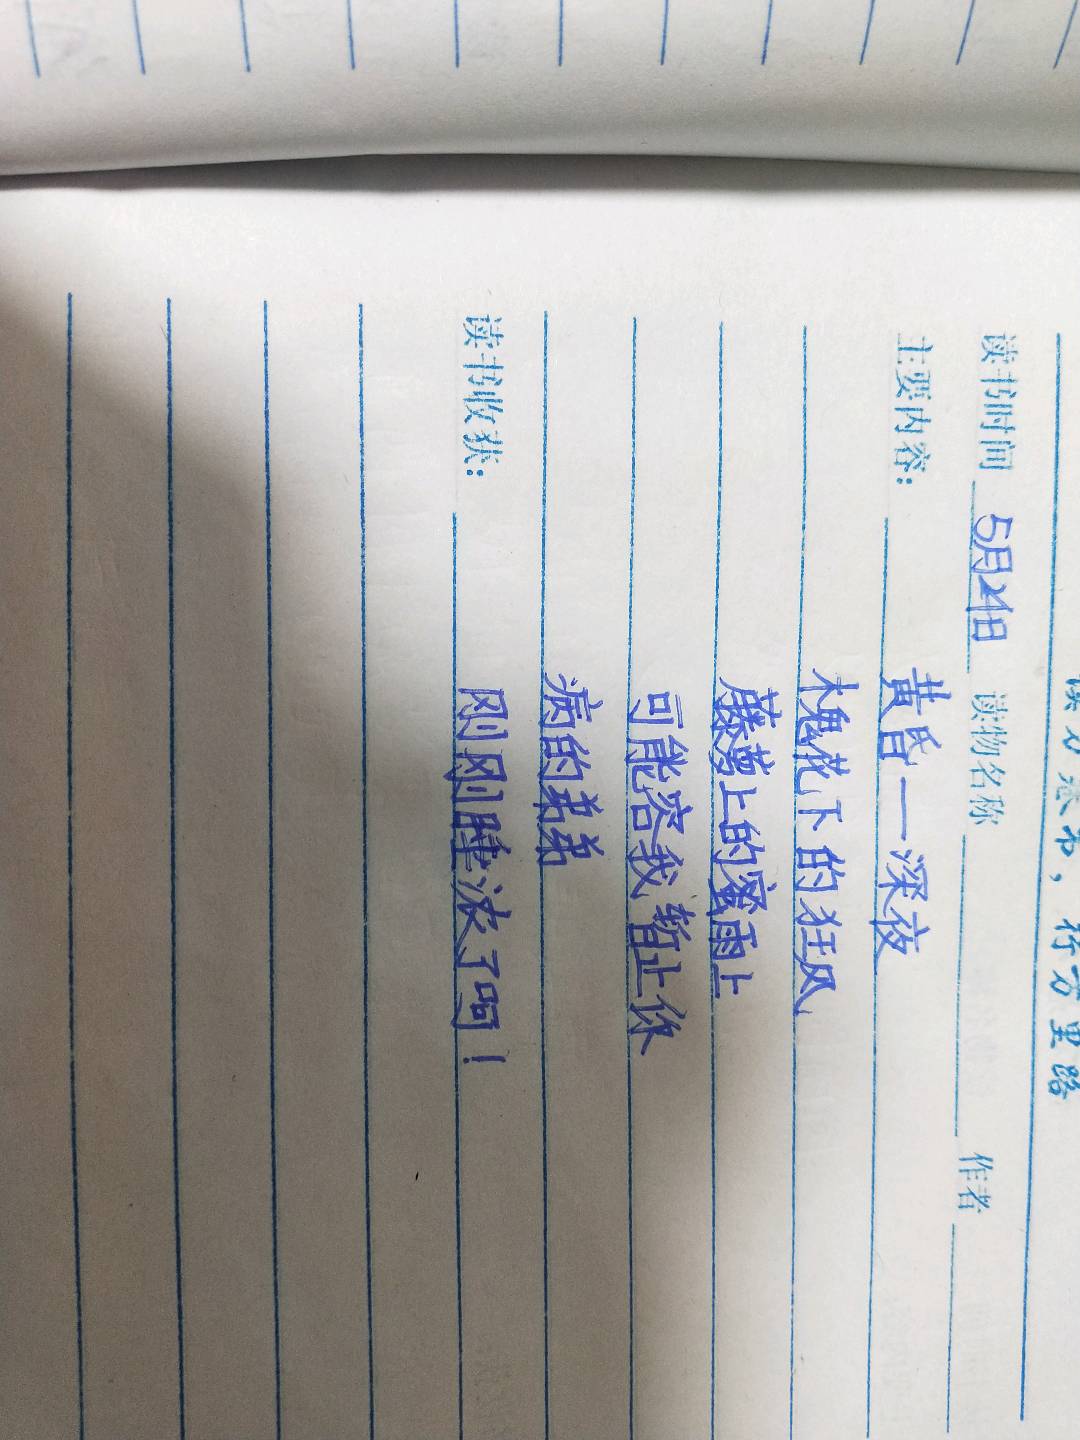 读万卷书，行万里路
读书时间 5月21日 读物名称 作者
主要内容：
黄昏——深夜
槐花下的狂风
藤萝上的蜜雨上
可能容我暂止你
病的弟弟
读书收获：
刚刚睡浓了呵！